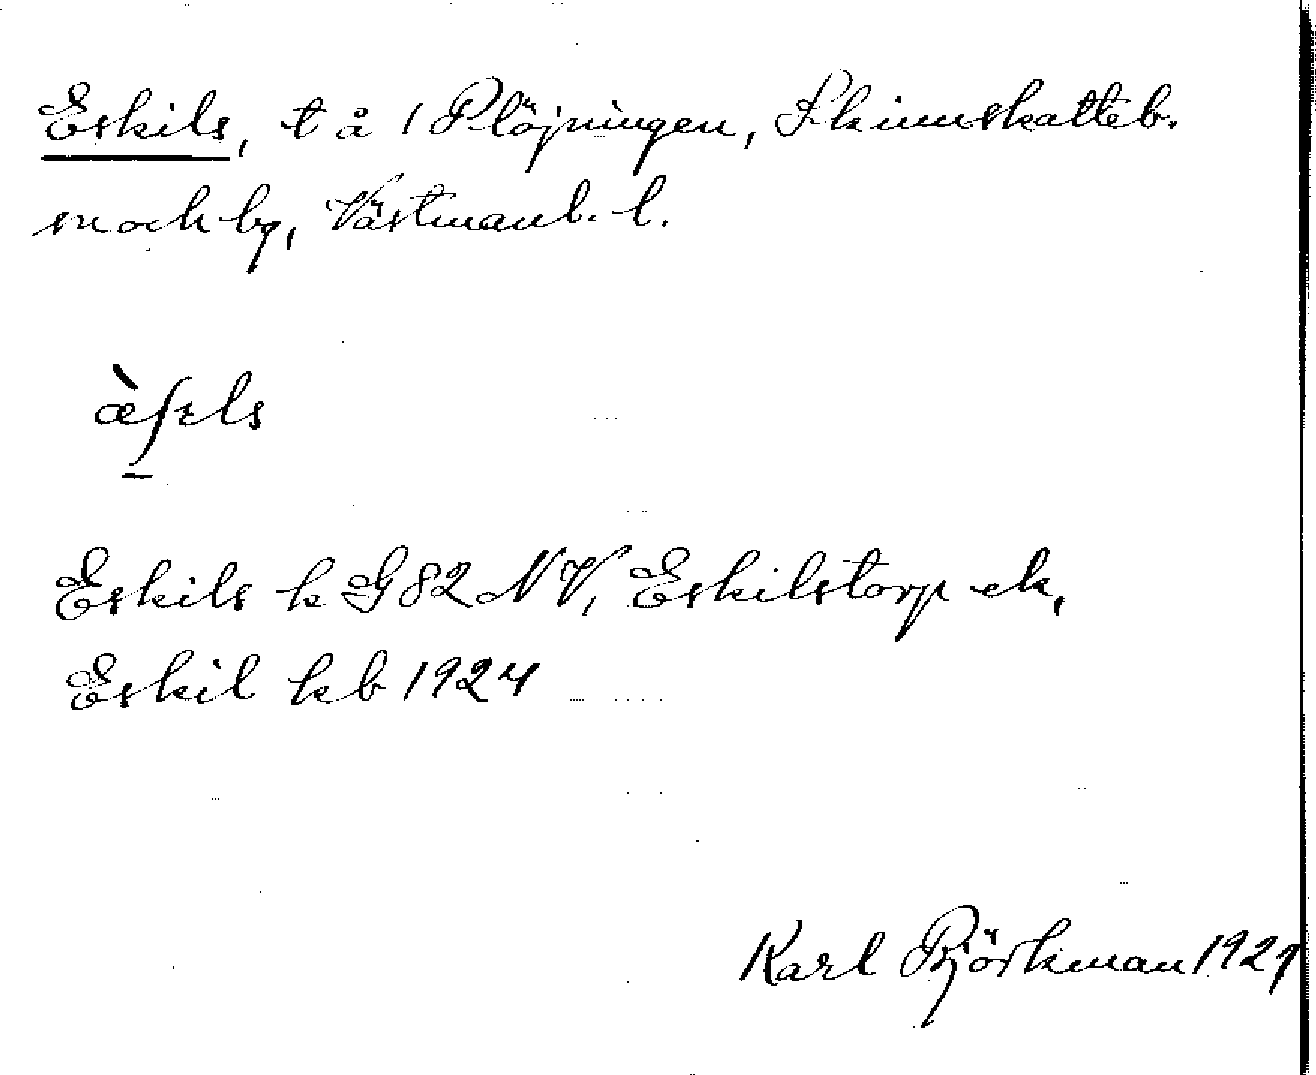 Eskils, t å 1 Plöjningen, Skinnskatteb.
sn och by, Västmanl. l.
æ̀ʃɛls
Eskils k G 82 NV, Eskilstorp ek,
Eskil kb 1924
Karl Björkman 1929